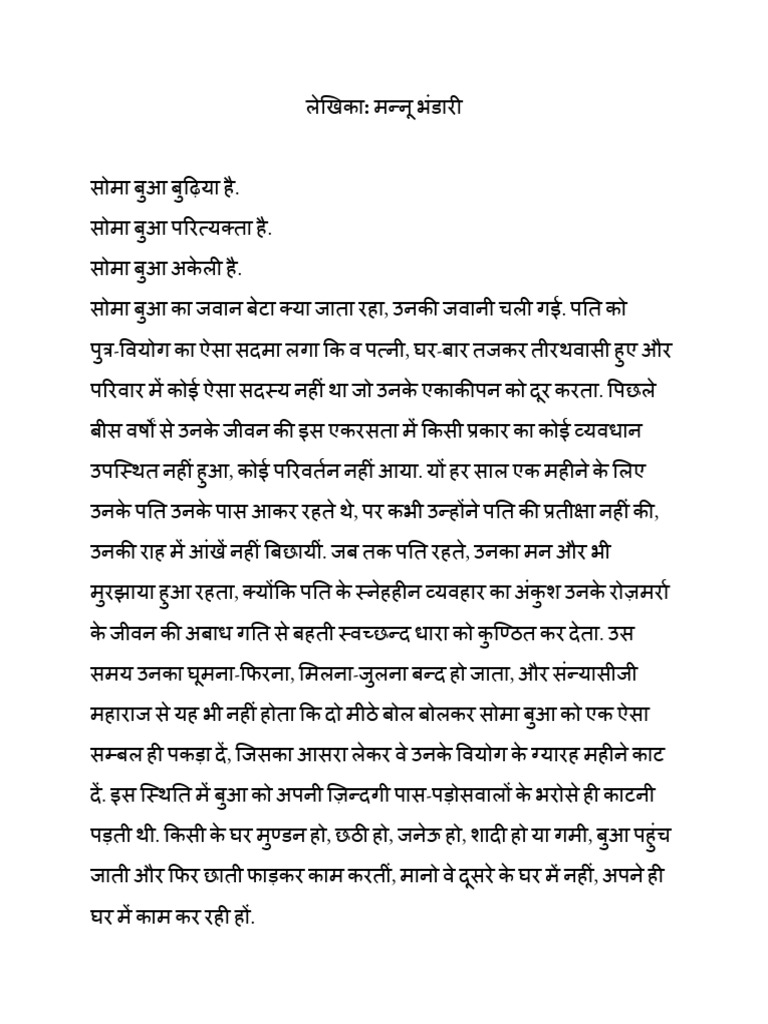 लेखिका: मन्नू भंडारी
सोमा बुआ बुढ़िया है.
सोमा बुआ परित्यक्ता है.
सोमा बुआ अकेली है.
सोमा बुआ का जवान बेटा क्या जाता रहा, उनकी जवानी चली गई. पति को
पुत्र-वियोग का ऐसा सदमा लगा कि व पत्नी, घर-बार तजकर तीरथवासी हुए और
परिवार में कोई ऐसा सदस्य नहीं था जो उनके एकाकीपन को दूर करता. पिछले
बीस वर्षों से उनके जीवन की इस एकरसता में किसी प्रकार का कोई व्यवधान
उपस्थित नहीं हुआ, कोई परिवर्तन नहीं आया. यों हर साल एक महीने के लिए
उनके पति उनके पास आकर रहते थे, पर कभी उन्होंने पति की प्रतीक्षा नहीं की,
उनकी राह में आंखें नहीं बिछायीं. जब तक पति रहते, उनका मन और भी
मुरझाया हुआ रहता, क्योंकि पति के स्नेहहीन व्यवहार का अंकुश उनके रोज़मर्रा
के जीवन की अबाध गति से बहती स्वच्छन्द धारा को कुण्ठित कर देता. उस
समय उनका घूमना-फिरना, मिलना-जुलना बन्द हो जाता, और संन्यासीजी
महाराज से यह भी नहीं होता कि दो मीठे बोल बोलकर सोमा बुआ को एक ऐसा
सम्बल ही पकड़ा दें, जिसका आसरा लेकर वे उनके वियोग के ग्यारह महीने काट
दें. इस स्थिति में बुआ को अपनी ज़िन्दगी पास-पड़ोसवालों के भरोसे ही काटनी
पड़ती थी. किसी के घर मुण्डन हो, छठी हो, जनेऊ हो, शादी हो या गमी, बुआ पहुंच
जाती और फिर छाती फाड़कर काम करतीं, मानो वे दूसरे के घर में नहीं, अपने ही
घर में काम कर रही हों.